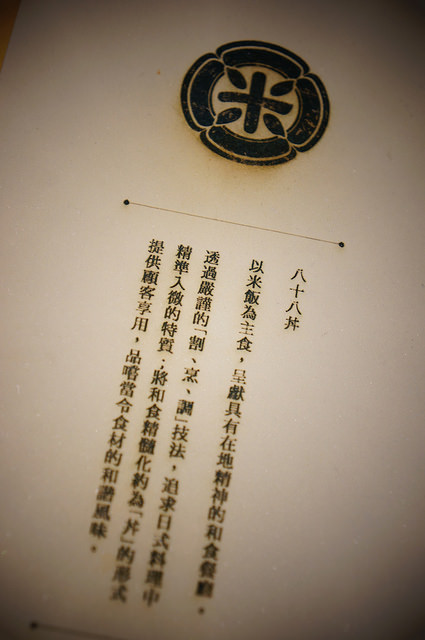 米
八十八丼
以米飯為主食，呈獻具有在地精神的和食餐廳。
透過嚴謹的「割、烹、調」技法，追求日式料理中
精準入微的特質；將和食精髓化約為「丼」的形式
提供顧客享用，品嚐當令食材的和諧風味。